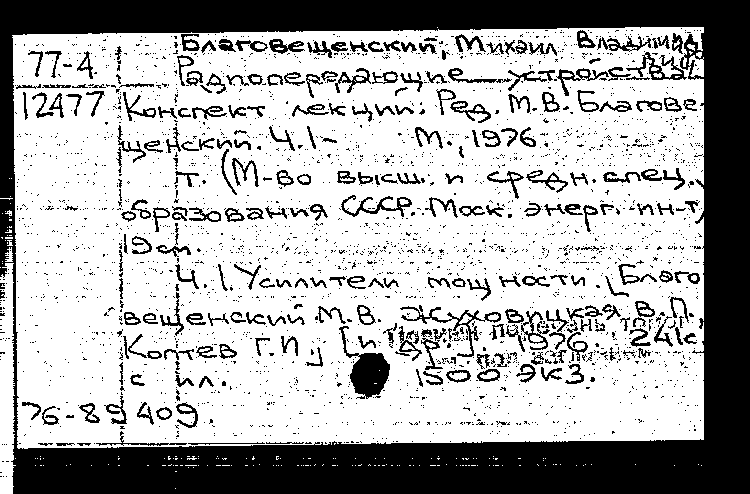 Благовещенский, Михаил Владимир
77-4 Радиопередающие устройства.
12477 Конспект лекций: Ред. М.В. Благове-
щенский. Ч.1- М., 1976.
т. (М-во высш. и средн. спец.
образования СССР. Моск. энерг. ин-т)
19 см.
Ч. 1. Усилители мощности. [Благо
вещенский М.В. Жуховицкая В.П.,
Коптев Г.И., [и др.]. 1976. 241с.
с ил. 1500 экз.
76-89409.